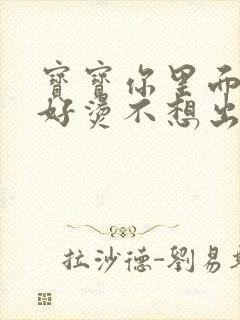 寶寶你里
好燙不想出
拉沙德-劉易